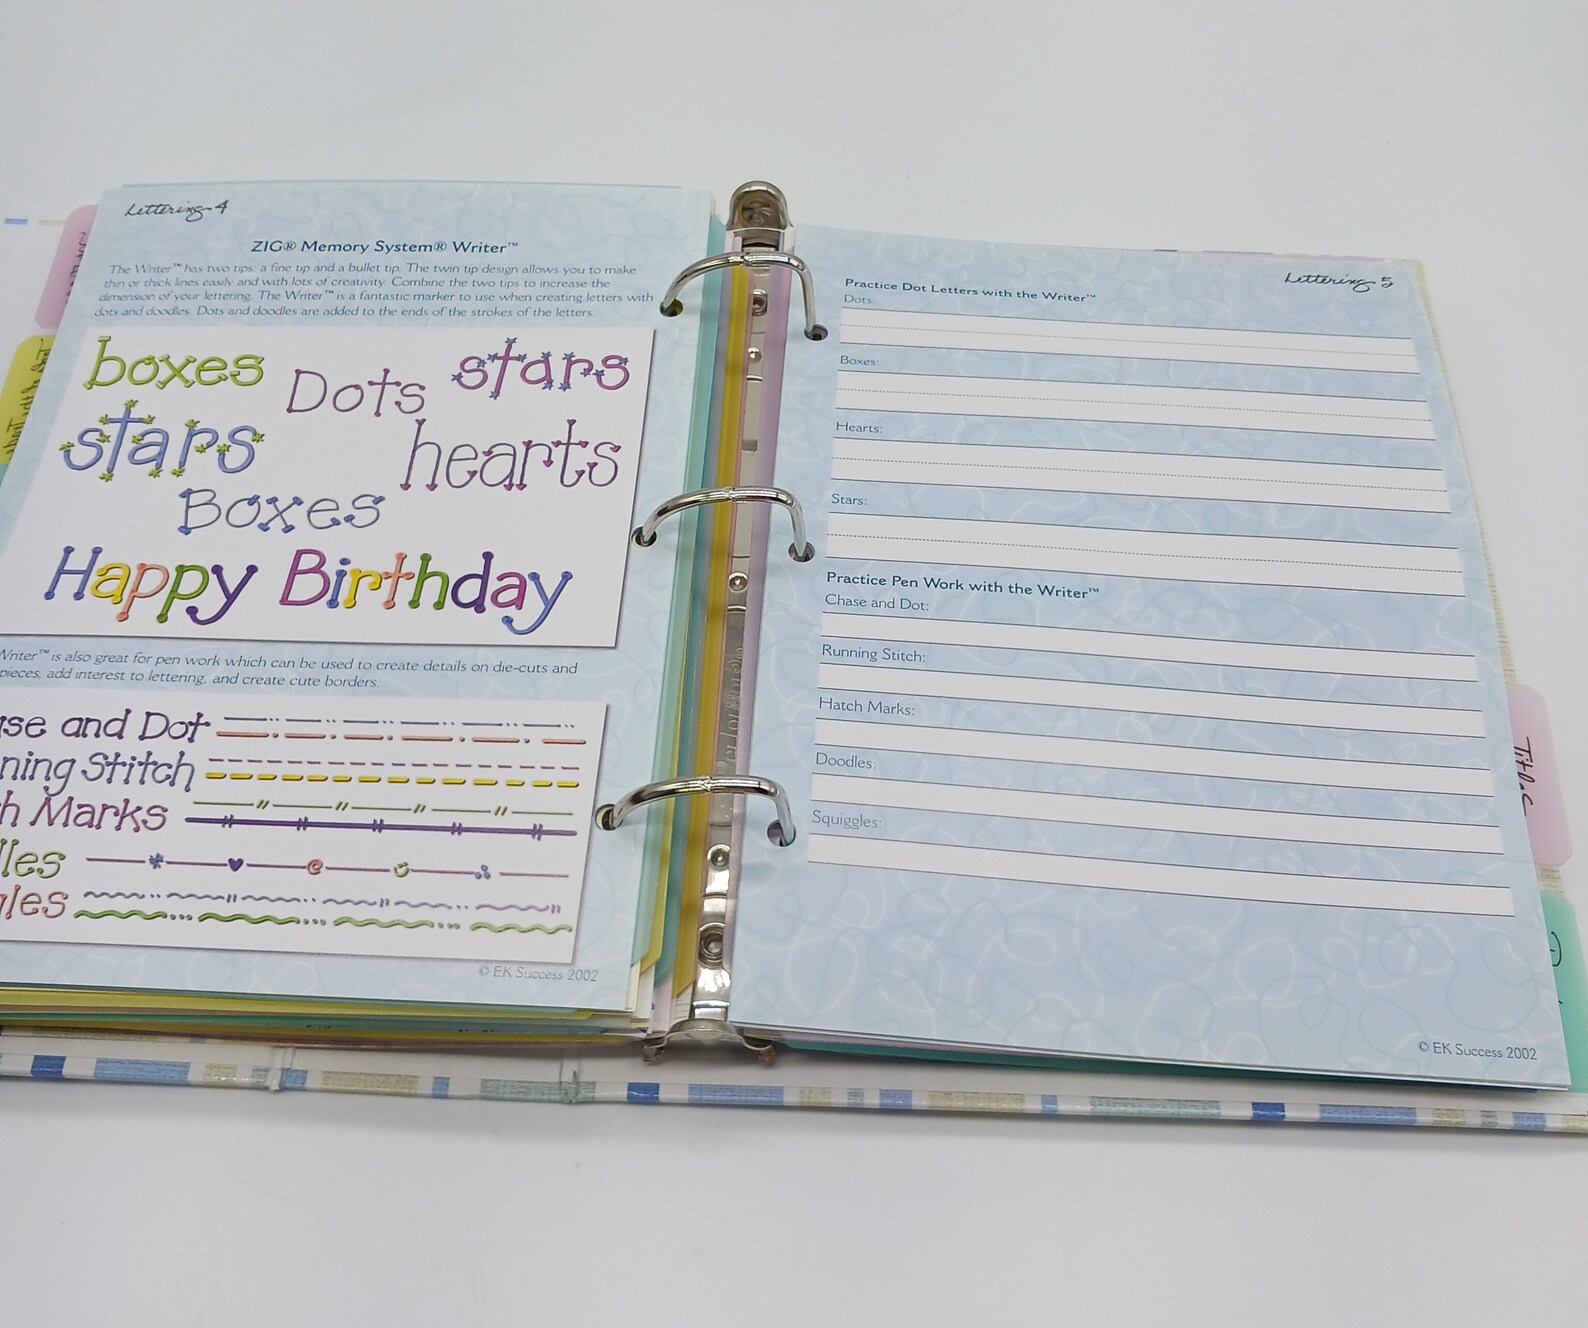 Lettering 4
ZIG® Memory System® Writer™
The Writer™ has two tips: a fine tip and a bullet tip. The twin tip design allows you to make
thin or thick lines easily and with lots of creativity. Combine the two tips to increase the
dimension of your lettering. The Writer™ is a fantastic marker to use when creating letters with
dots and doodles. Dots and doodles are added to the ends of the strokes of the letters.
boxes Dots stars
stars hearts
Boxes
Happy Birthday
Writer™ is also great for pen work which can be used to create details on die-cuts and
pieces, add interest to lettering, and create cute borders.
se and Dot
ning Stitch
h Marks
les
gles
© EK Success 2002
Lettering 5
Practice Dot Letters with the Writer™
Dots:
Boxes:
Hearts:
Stars:
Practice Pen Work with the Writer™
Chase and Dot:
Running Stitch:
Hatch Marks:
Doodles:
Squiggles:
© EK Success 2002
Titles